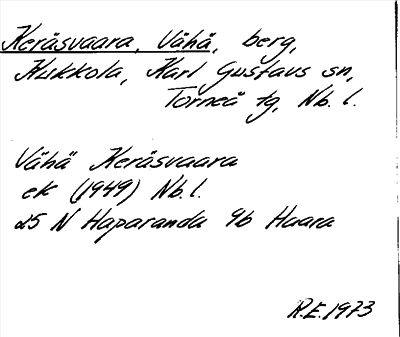 Keräsvaara, Vähä, berg,
Kukkola, Karl Gustavs sn,
Torneå tg, Nb. l.
Vähä Keräsvaara
ek (1949) Nb. l.
25 N Haparanda 9b Haara
R.E. 1973